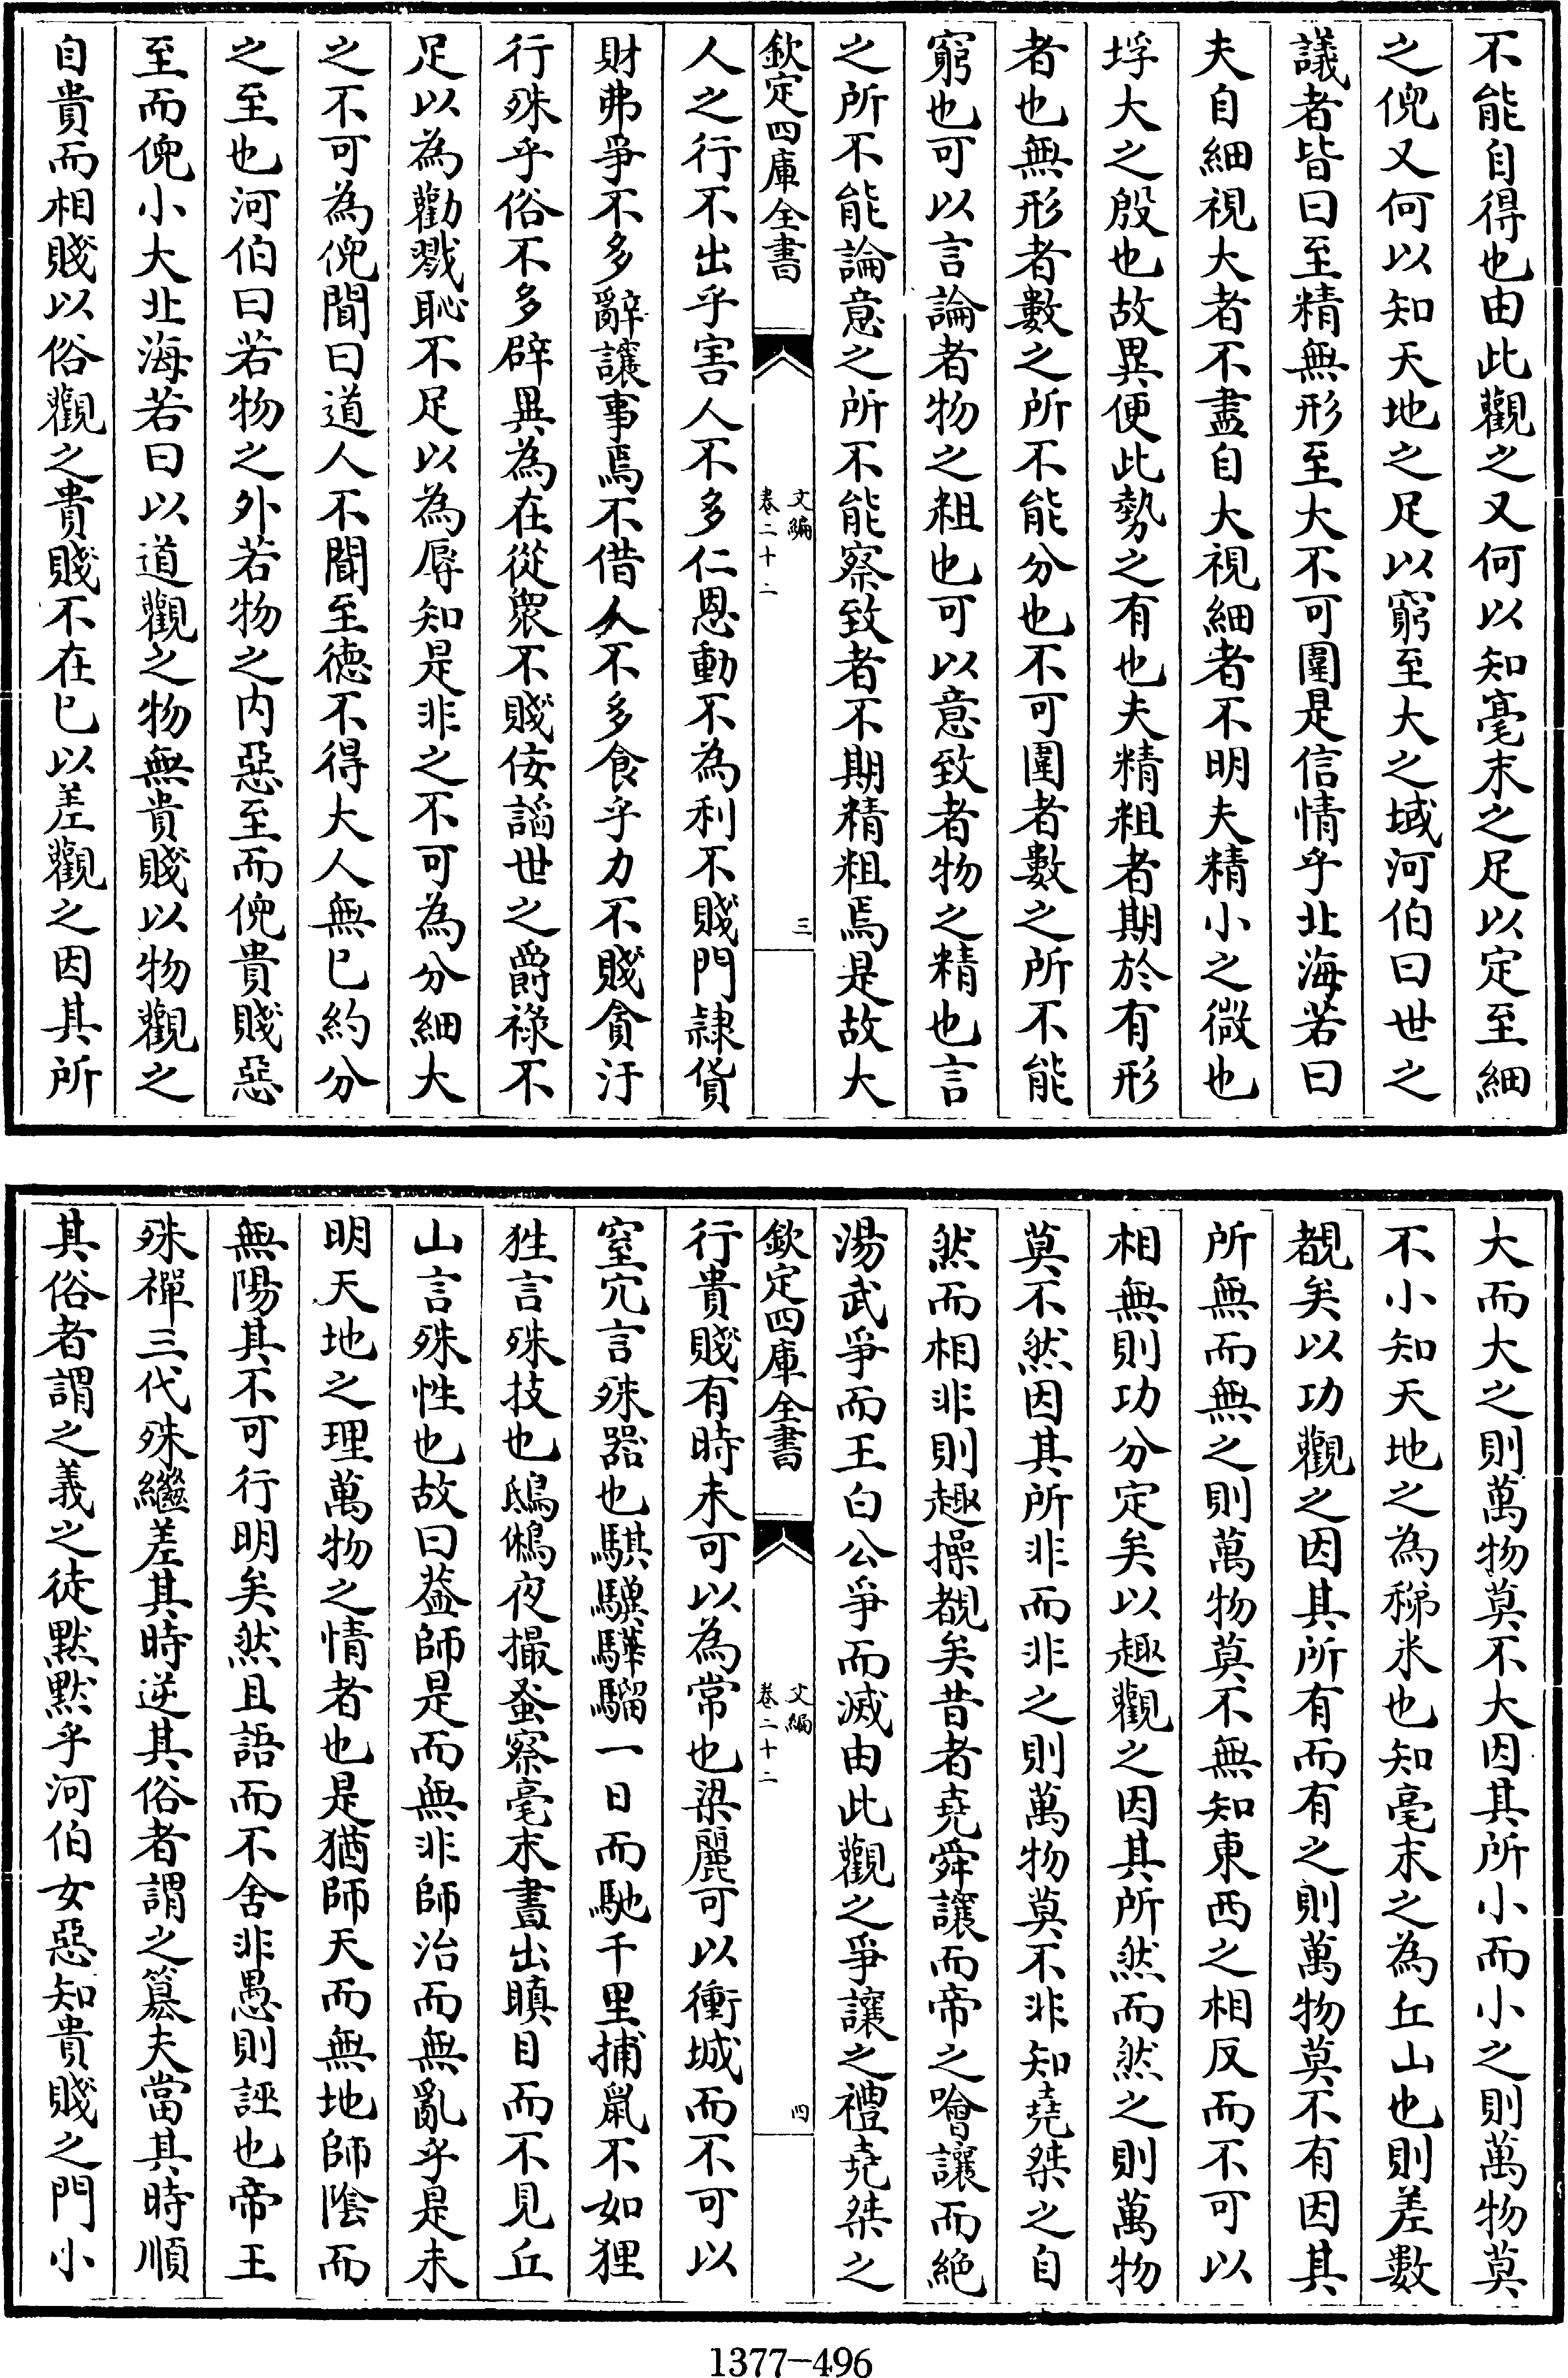 不能自得也由此觀之又何以知毫末之足以定至細
之倪又何以知天地之足以窮至大之域河伯曰世之
議者皆曰至精無形至大不可圍是信情乎北海若曰
夫自細視大者不盡自大視細者不明夫精小之微也
垺大之殷也故異便此勢之有也夫精粗者期於有形
者也無形者數之所不能分也不可圍者數之所不能
窮也可以言論者物之粗也可以意致者物之精也言
之所不能論意之所不能察致者不期精粗焉是故大
欽定四庫全書
文編
卷二十二
三
人之行不出乎害人不多仁恩動不為利不賤門隷貨
財弗爭不多辭讓事焉不借人不多食乎力不賤貪汙
行殊乎俗不多辟異為在從衆不賤佞謟世之爵祿不
足以為勸戮恥不足以為辱知是非之不可為分細大
之不可為倪聞曰道人不聞至德不得大人無已約分
之至也河伯曰若物之外若物之内惡至而倪貴賤惡
至而倪小大北海若曰以道觀之物無貴賤以物觀之
自貴而相賤以俗觀之貴賤不在已以差觀之因其所
大而大之則萬物莫不大因其所小而小之則萬物莫
不小知天地之為稊米也知毫末之為丘山也則差數
覩矣以功觀之因其所有而有之則萬物莫不有因其
所無而無之則萬物莫不無知東西之相反而不可以
相無則功分定矣以趣觀之因其所然而然之則萬物
莫不然因其所非而非之則萬物莫不非知堯桀之自
然而相非則趣操覩矣昔者堯舜讓而帝之噲讓而絶
湯武爭而王白公爭而滅由此觀之爭讓之禮堯桀之
欽定四庫全書
文編
卷二十二
四
行貴賤有時未可以為常也梁麗可以衝城而不可以
窒穴言殊器也騏驥驊騮一日而馳千里捕鼠不如狸
狌言殊技也鴟鵂夜撮蚤察毫末晝出瞋目而不見丘
山言殊性也故曰葢師是而無非師治而無亂乎是未
明天地之理萬物之情者也是猶師天而無地師陰而
無陽其不可行明矣然且語而不舍非愚則誣也帝王
殊禪三代殊繼差其時逆其俗者謂之簒夫當其時順
其俗者謂之義之徒默默乎河伯女惡知貴賤之門小
1377-496